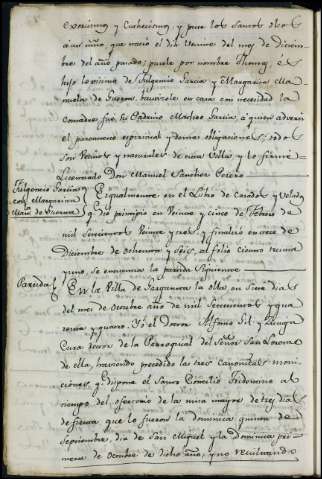 exorcismos y Catherismos, y puse los Santos oleos
a un niño que nació el día treinta del mes de Diciem-
bre del año pasado; púsele por nombre Thomas, es
hijo lexitimo de Fulgencio Garcia, y Margarita Ma-
nuela de Guerra, bautizóle en casa con necesidad la
Comadre, fue su Padrino Matheo Garcia, a quien advertí
el parentesco espiritual, y demas obligaciones, todos
son vecinos y naturales de esta Villa, y lo firmé
Licenciado Don Manuel Sanchez Cotero
Fulgencio Garcia
con Margarita
Man.ª de Guerra
Igualmente en el Libro de Casados y Velados
q dio principio en Veinte y cinco de Febrero de
mil setecientos Veinte y tres, y finalizó en once de
Diciembre de ochenta y seis, al folio ciento treinta
y uno, se encuentra la partida siguiente
Partida
En la Villa de Sargentes la olla, en siete dias
del mes de Octubre año de mil setecientos y qua
renta y quatro. Yo el Doctor Alfonso Gil, y
Cura Thor de la Parroquial del Señor San Lorenzo
de ella, haviendo precedido las tres canonicas moni-
ciones, q dispone el Santo Concilio Tridentino al
tiempo del ofertorio de la misa mayor de tres dias
de fiesta que lo fueron la dominica quinta de
septiembre, dia de San Miguel, y la Dominica pri-
mera de Octubre de dicho año, y no resultando